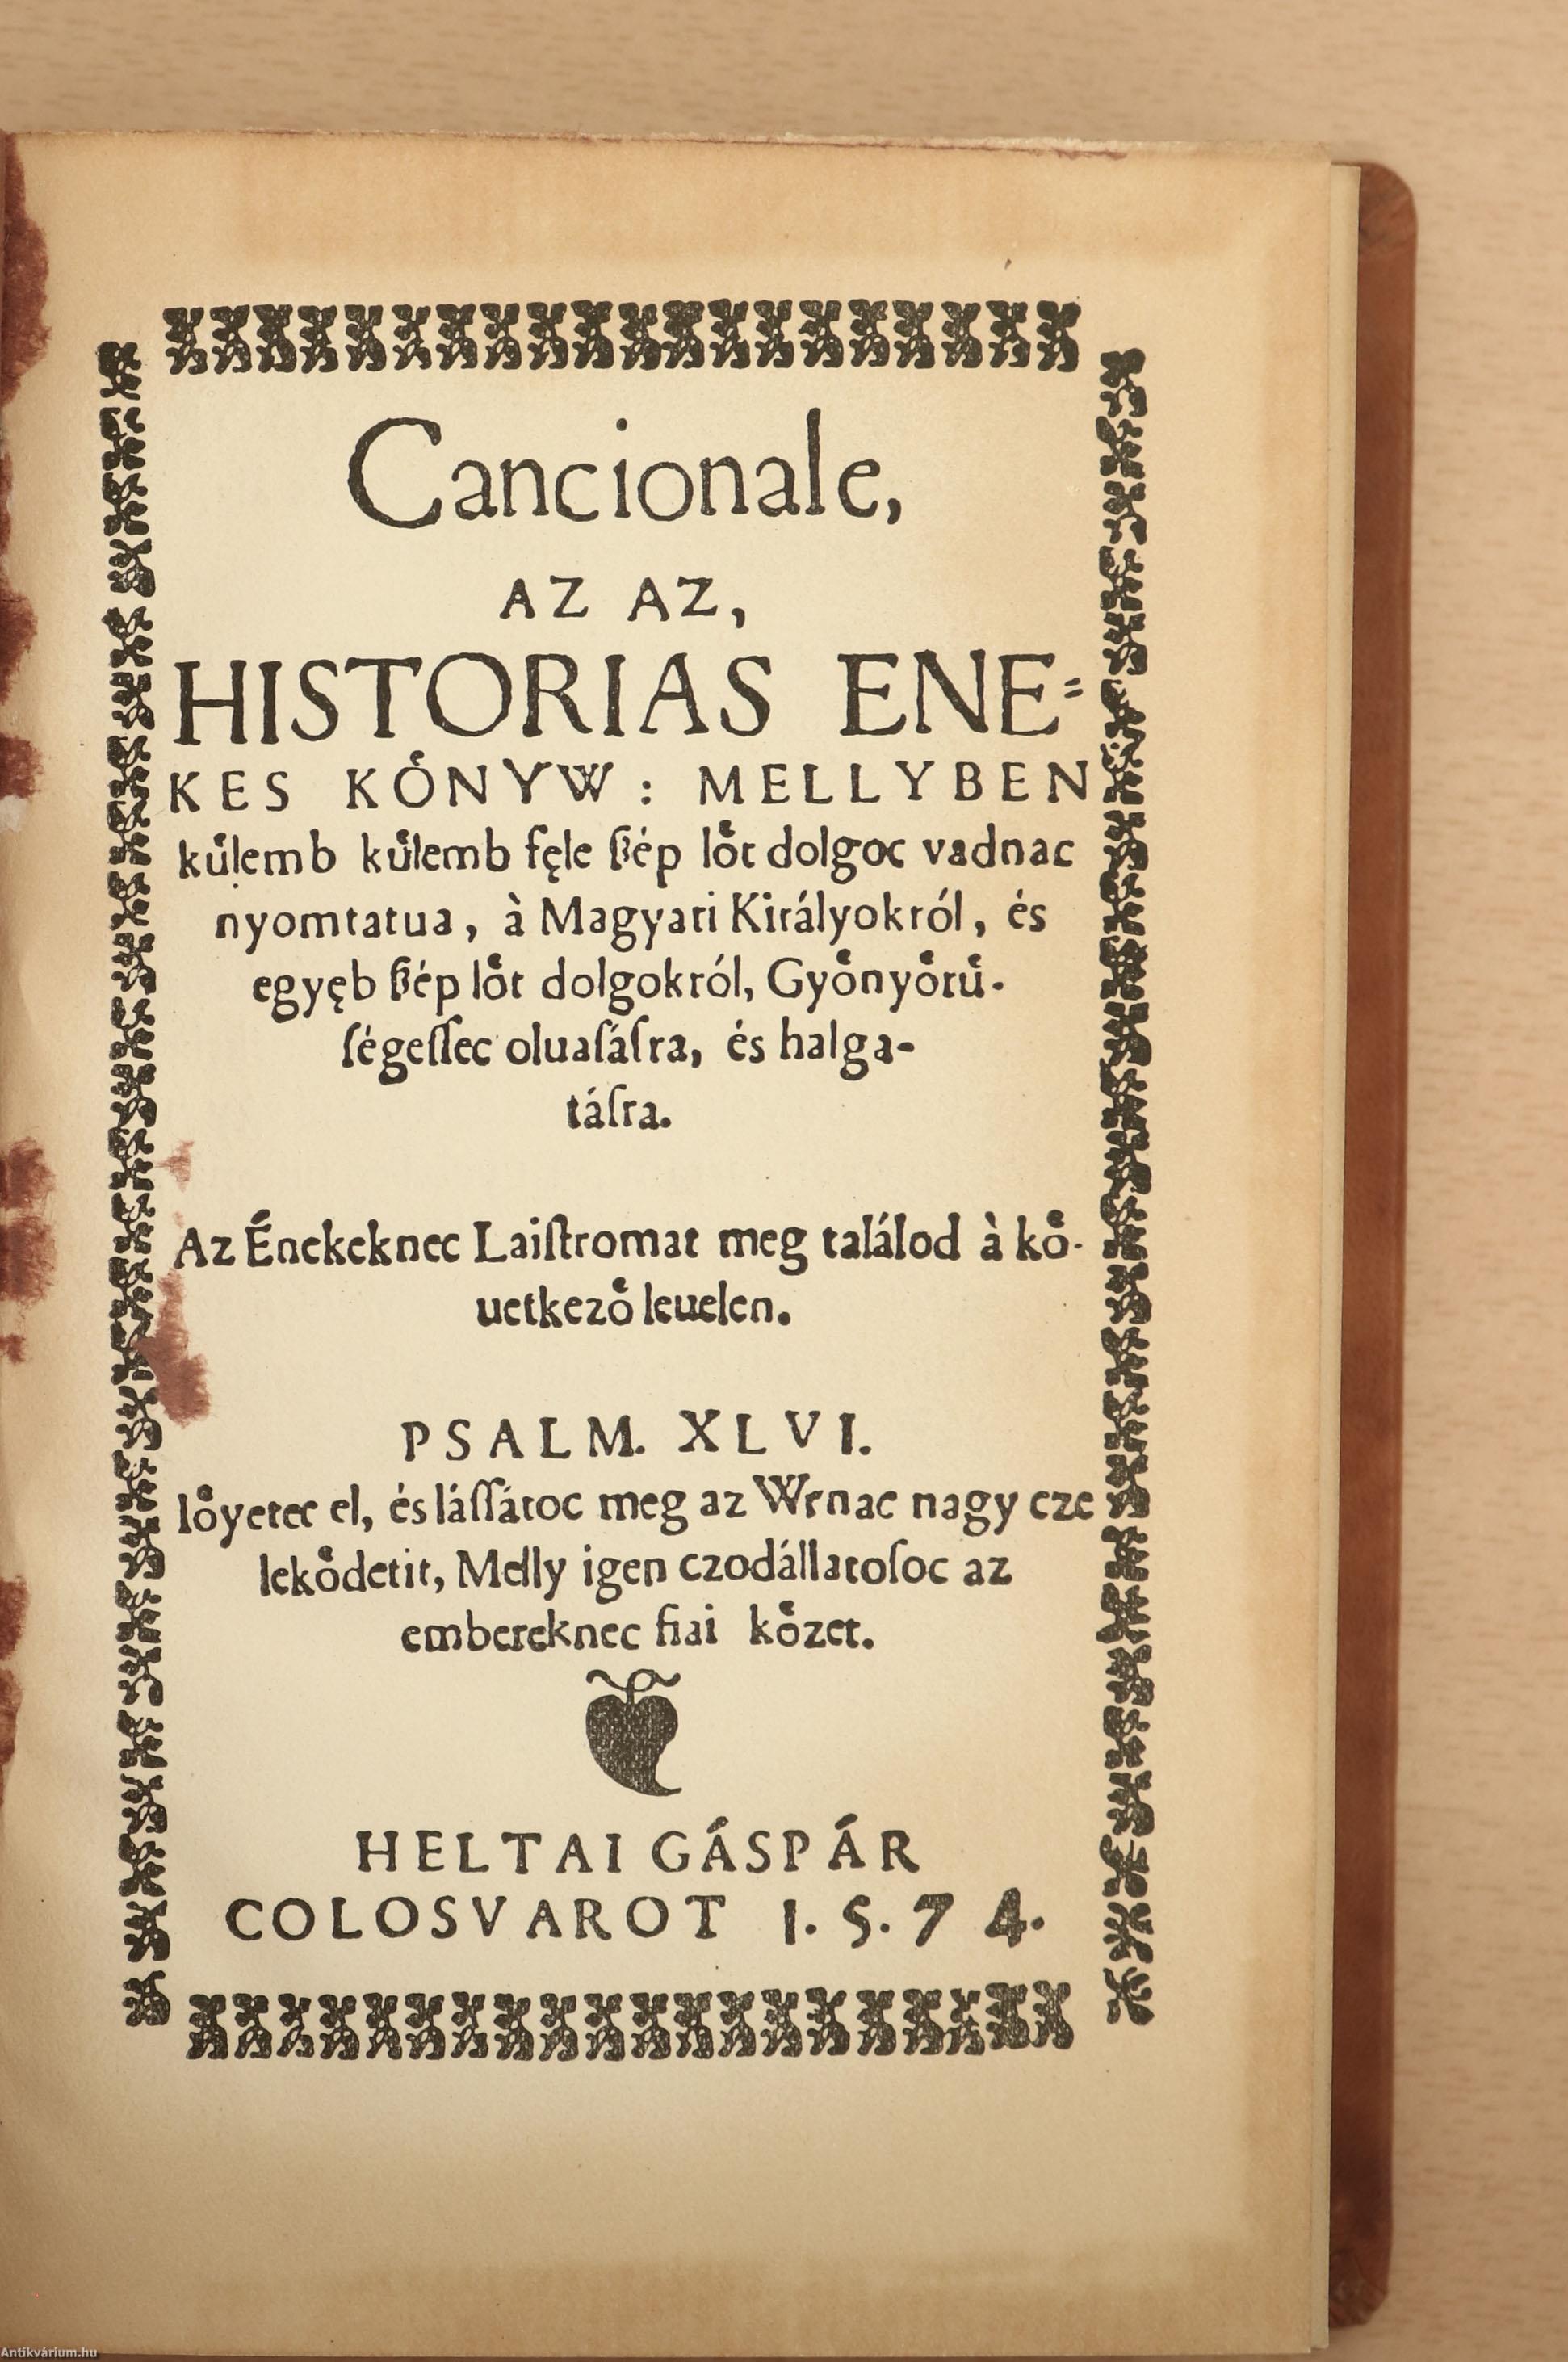 Cancionale,
AZ AZ,
HISTORIAS ENE⸗
KES KÓNYW : MELLYBEN
kuͤlemb kuͤlemb fęle ßép loͤt dolgoc vadnac
nyomtatua, à Magyari Királyokról, és
egyęb ßép loͤt dolgokról, Gyoͤnyoͤruͤ-
ſégeſſec oluaſáſra, és halga-
táſra.
Az Énekeknec Laiſtromat meg találod à koͤ-
uetkezoͤ leuelen.
PSALM. XLVI.
Ioͤyetec el, és láſſátoc meg az Wrnac nagy cze
lekoͤdetit, Melly igen czodállatoſoc az
embereknec fiai koͤzet.
HELTAI GÁSPÁR
COLOSVAROT 1. 5. 7 4.
Antikvárium.hu